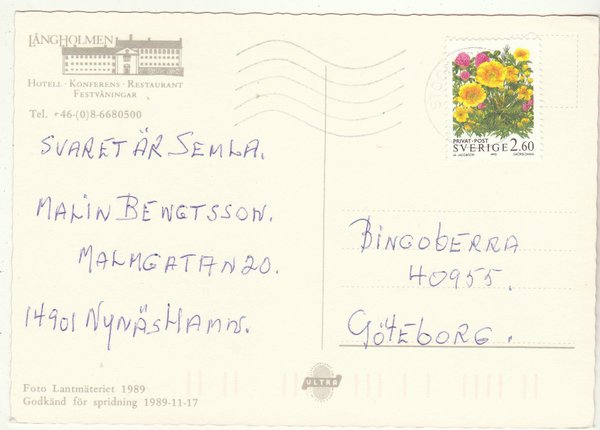 LÅNGHOLMEN
HOTELL · KONFERENS · RESTAURANT
FESTVÅNINGAR
Tel. +46-(0)8-6680500
SVARET ÄR SEMLA.
MALIN BENGTSSON.
MALMGATAN 20.
14901 NYNÄSHAMN.
Foto Lantmäteriet 1989
Godkänd för spridning 1989-11-17
ULTRA
PRIVAT·POST
SVERIGE 2.60
BINGOBERRA
40955.
GÖTEBORG.